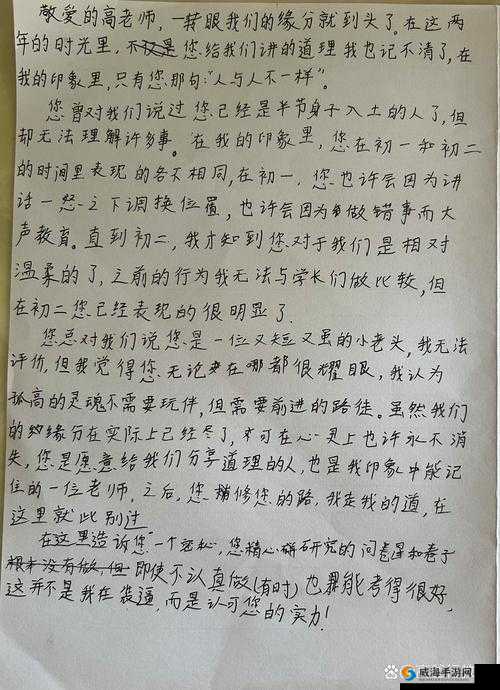 敬爱的高老师,一转眼我们的缘分就到头了。在这两
年的时光里,不仅是您给我们讲的道理我也记不清了,在
我的印象里,只有您那句:"人与人不一样"。
您曾对我们说过您已经是半节身子入土的人了,但
却无法理解许多事。在我的印象里,您在初一和初二
的时间里表现的各不相同,在初一,您也许会因为讲
话一怒之下调换位置,也许会因为做错事而大
声教育。直到初二,我才知到您对于我们是相对
温柔的了,之前的行为我无法与学长们做比较,但
在初二您已经表现的很明显了.
您总对我们说您是一位又短又虽的小老头,我无法
评价,但我觉得您无论在哪都很耀眼,我认为
孤高的灵魂不需要玩伴,但需要前进的路徒。虽然我们
的缘分在实际上已经尽了,可在心灵上也许永不消
失,您是愿意给我们分享道理的人,也是我印象中能记
住的一位老师,之后,您修您的路,我走我的道,在
这里就此别过
在这里造诉您一个密秘,您精心研究的问卷星和卷子
根本没有做,但即使不认真做(有时)也能考得很好,
这并不是我在装逼,而是认可您的实力!
威海手游网